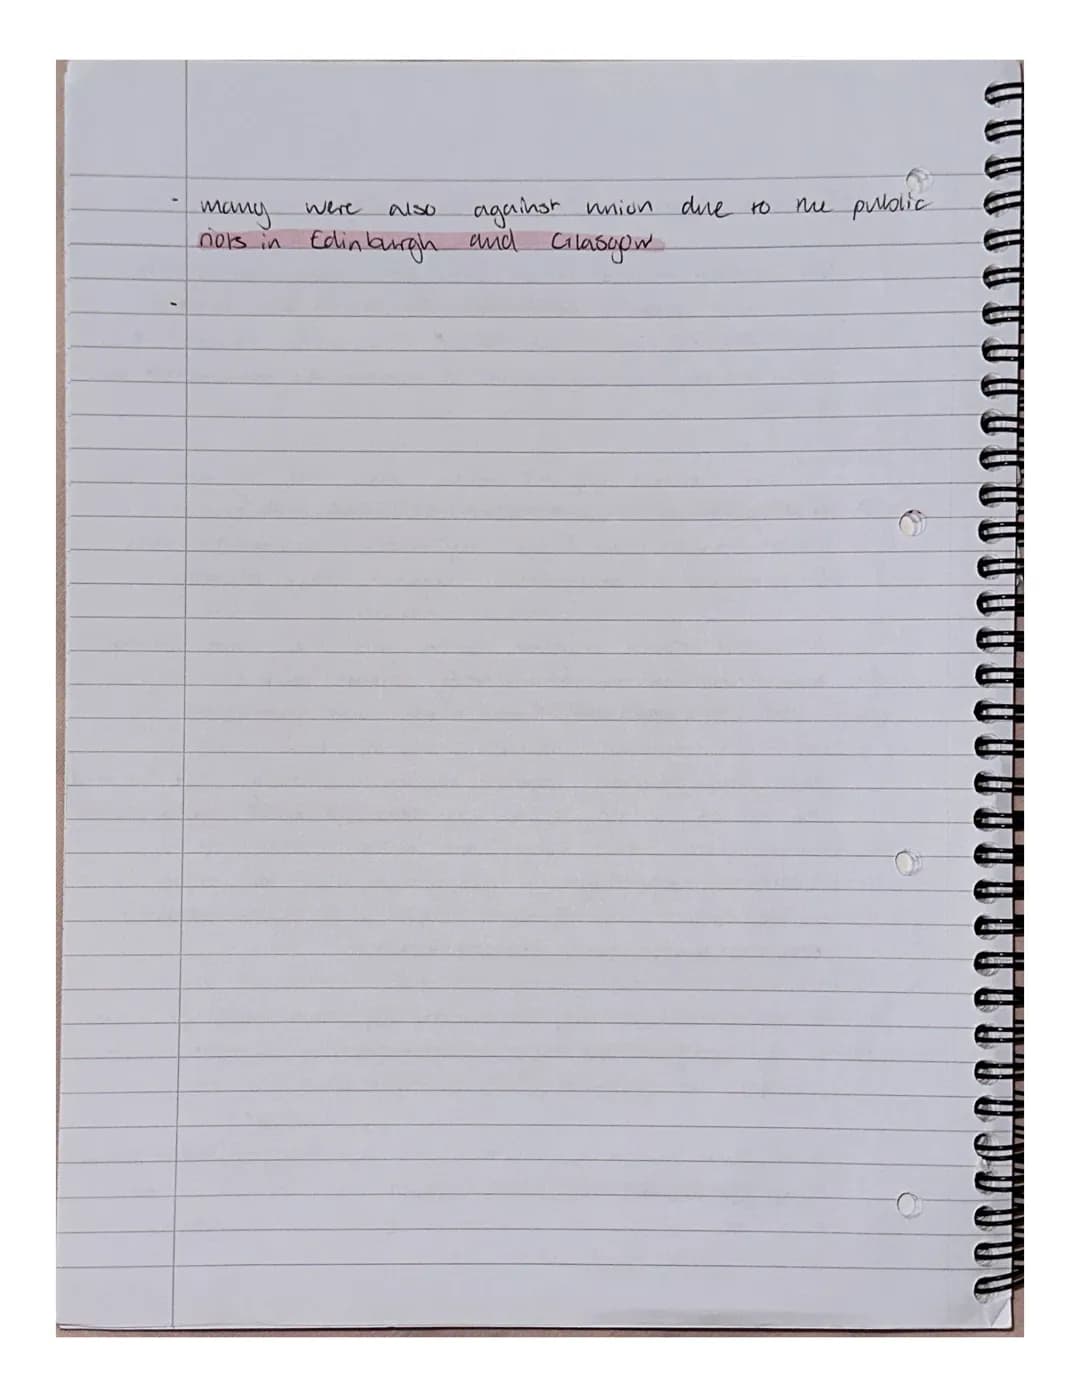 - many were also against union due to the public
riots in Edinburgh and Glasgow
-